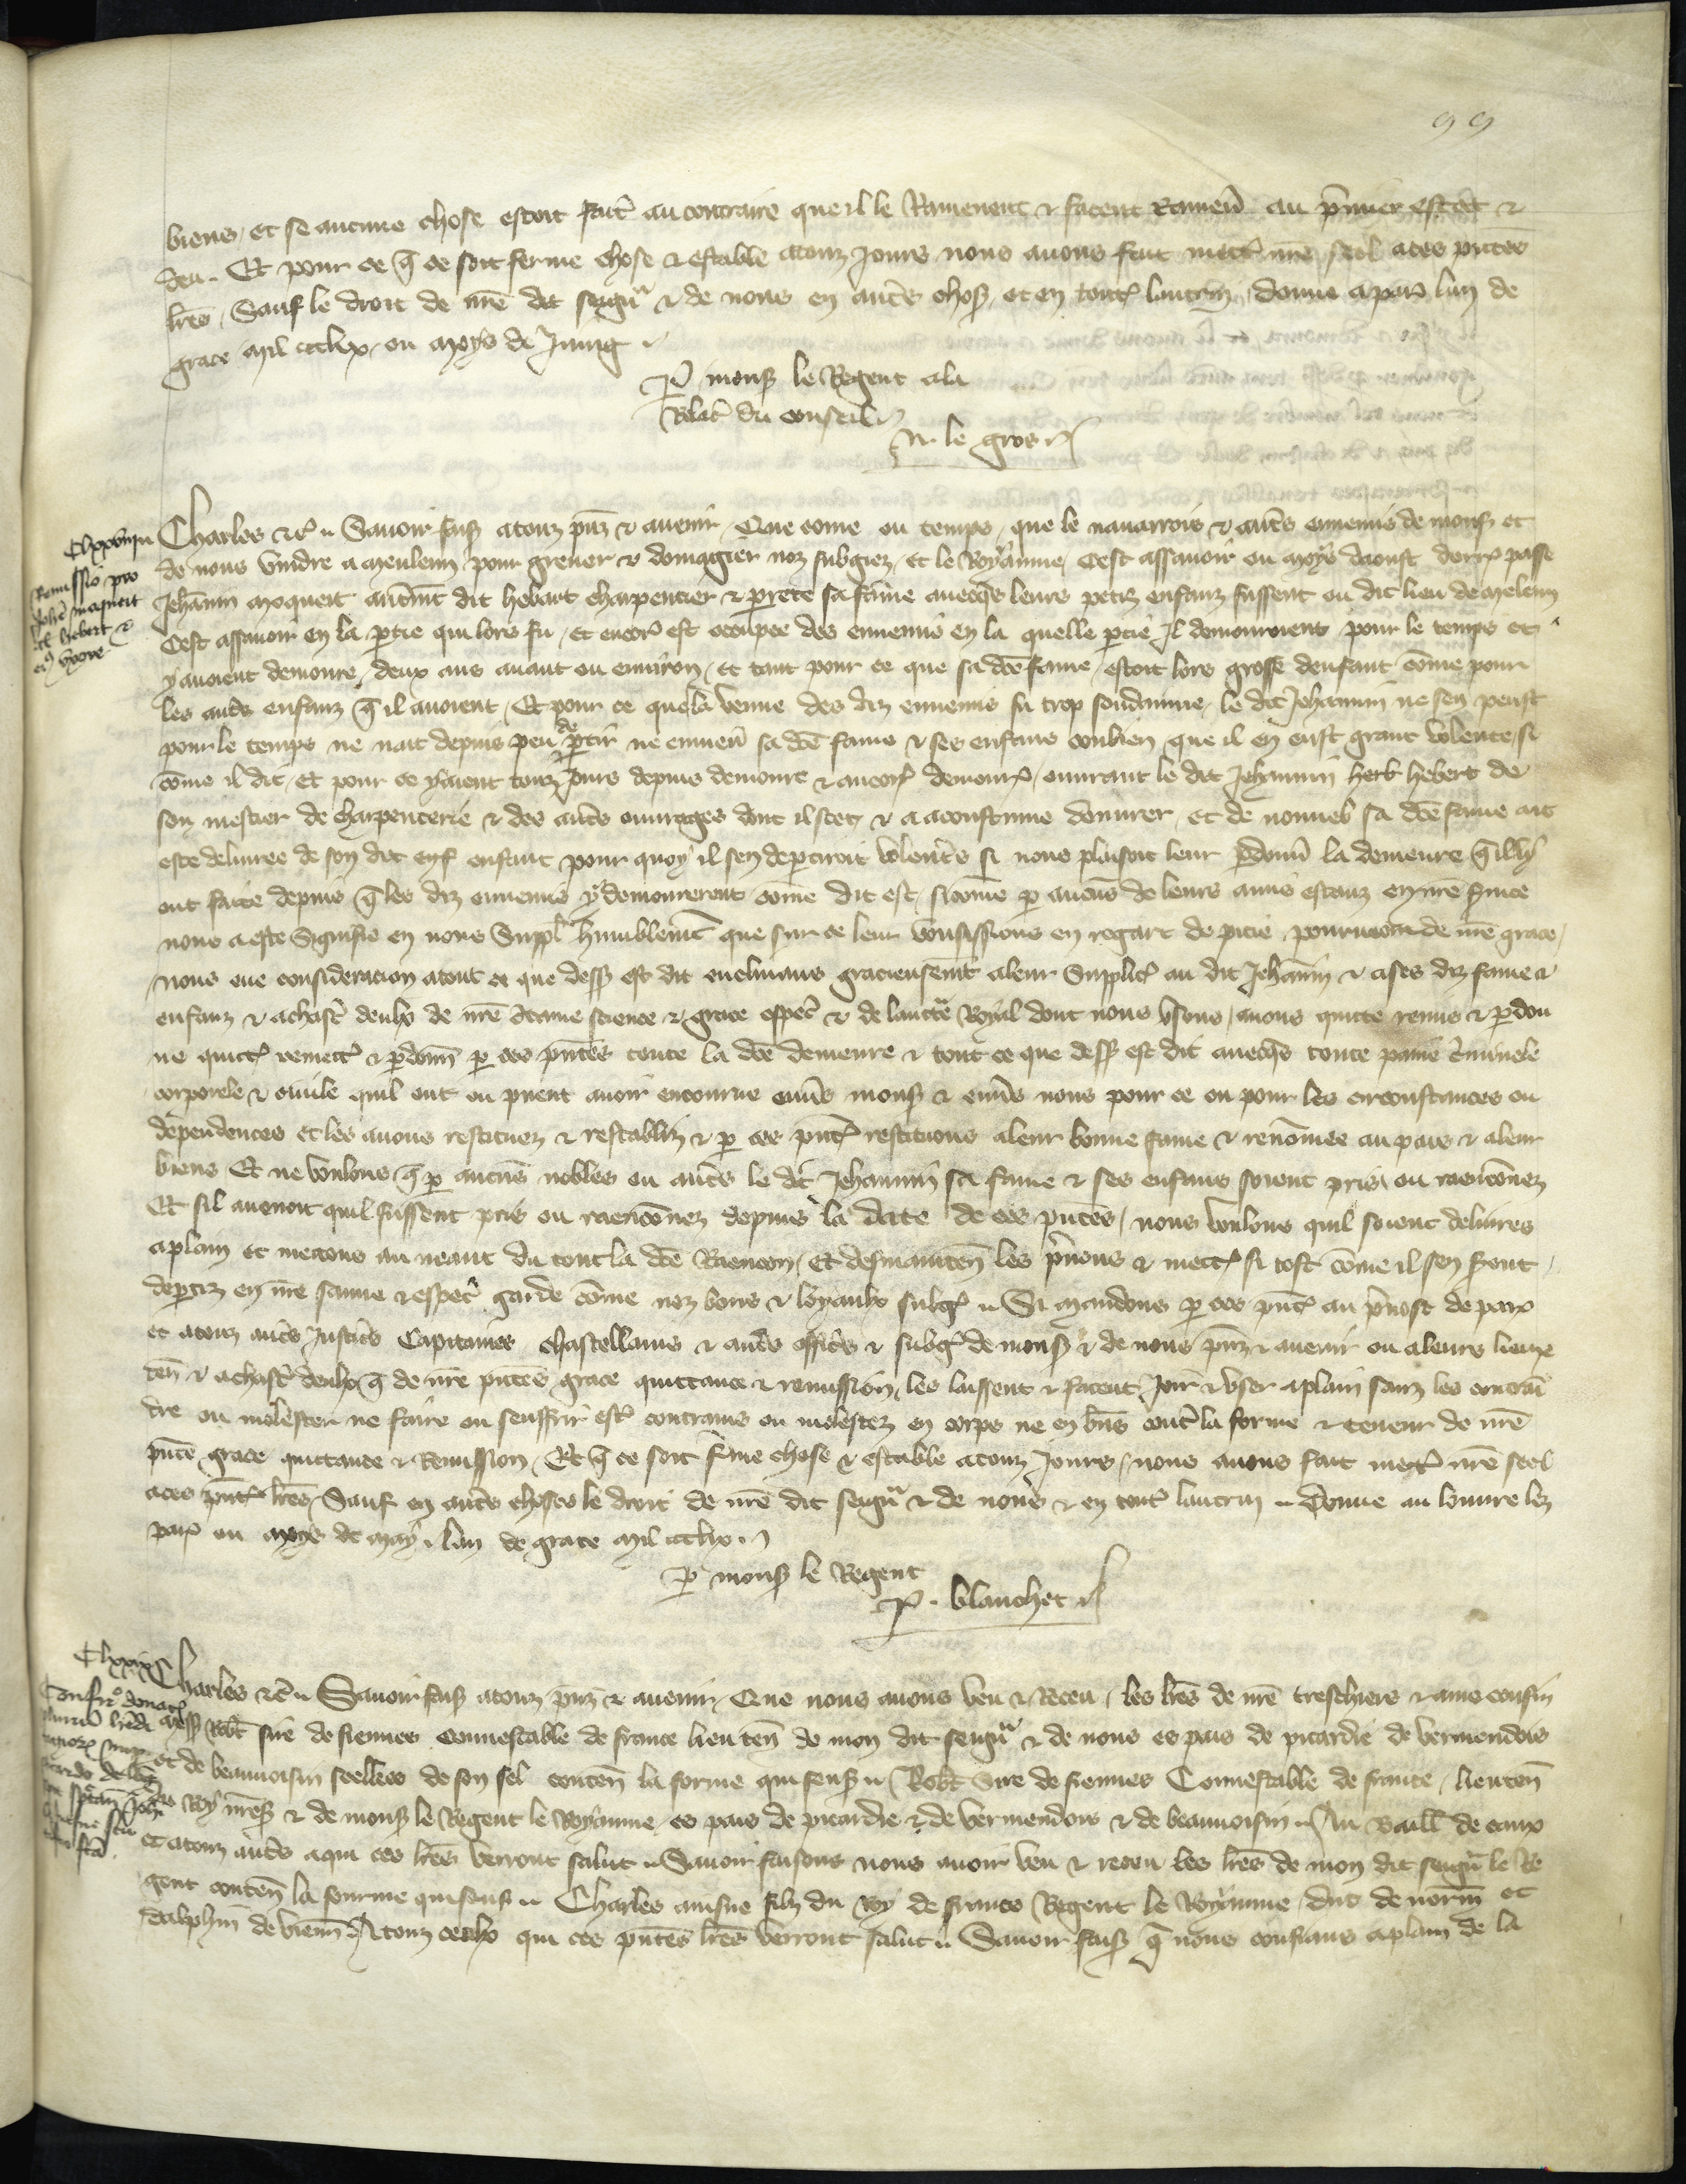 99
biens, et se aucune chose estoit faite au contraire que il le Ramenent & facent Ramen̄ au p̄mier estat &
deu. Et pour ce q̄ ce soit ferme chose & estable atouz Jours nous avons fait mett̄ nr̄e seel a ces p̄ntes
lr̄es, Sauf le droit de nr̄e dit seign̄ & de nous en aut̄s choses, et en toutes lautrui, donne a par̄ lan de
grace mil ccclx, ou moys de Juing
P̄ mons̄ le Regent a la
Relac̄ du conseil
N. le gros
Clxxviii
Remissio pro
Joh̄e moquet
dc̄ hebert &
ei9 uxore
Charles &c̄ Savoir fais̄ atouz p̄nz & avenir, Que come ou temps, que le navarrois & aut̄s ennemis de mons̄ et
de nous vindre a meuleun pour grever & domagier noz subgiez, et le Royaume, Cest assavoir ou moys daoust derr̄ passe
Jehannin moquet aut̄ment dit hebert charpentier & perrete sa fame avecq̄s leurs petiz enfanz fussent ou dit lieu de meleun
Cest assavoir en la p̄tie qui lors fu, et encor̄ est occupee des ennemis en la quelle p̄tie Il demouroient pour le temps et
y avoient demoure, deux ans avant ou environ, et tant pour ce que sa dc̄e fame, estoit lors grosse denfant, cōme pour
les aut̄s enfanz q̄ il avoient, Et pour ce que la venue des diz ennemis fu trop soudainne, le dit Jehannin ne sen peust
pour le temps ne nait depuis peu de p̄tir ne enmen̄ sa dc̄e fame & ses enfans conbien que il en eust grant volente, si
cōme il dit, Et pour ce y aient touz jours depuis demoure & ancor̄ demour̄, ouvrant le dit Jehannin herb hebert de
son mestier de charpenterie & des aut̄s ouvrages dont il scet & a acoustume douvrer, et de nouvel sa dc̄e fame ait
este delivree de son dit enf enfant pour quoy il sen departiroit volent̄s si nous plaisoit leur p̄don̄ la demeure q̄ illy
ont faite depuis q̄ les diz ennemis y demourerent cōme dit est, sicōme p̄ aucūs de leurs amis estanz en nr̄e s̄vice
nous a este Signifie en nous suppl̄ humblemēt que sur ce leur vousissions en regart de pitie pourveoir de nr̄e grace,
nous eue consideracion a tout ce que dess̄ est dit enclinans gracieusemēt a leur Supplic̄ au dit Jehannin & a ses diz fame &
enfanz & a chasc̄ deulx de nr̄e certaine science & grace especial & de lauctorite Royal dont nous usons, avons quitte remis & p̄don
ne quitt̄ remett̄ & p̄donn̄ p̄ ces p̄ntes toute la dc̄e demeure & tout ce que dess̄ est dit avecq̄s toute paine c̄minele
corporele & civile quil ont ou puent avoir encourue env̄s mons̄ & env̄s nous pour ce ou pour les circonstances ou
dependences et les avons restituez & restabliz & p̄ ces p̄ntes restituons a leur bonne fame & renōmee au pais & a leur
biens Et ne voulons q̄ p̄ aucūs nobles ou aut̄s le dit Jehannin sa fame & ses enfans soient pris ou raençonnez
Et sil avenoit quil fussent pris ou raençonnez depuis la date de ces p̄ntes, nous voulons quil soient delivres
a plain et mettons au neant du tout la dc̄e Raencon, Et desmainten̄ les p̄nons & mett̄ si tost cōme il sen s̄ont
dep̄tiz en nr̄e sauve & especial garde cōme noz bons & loyaulx subgiez Si mandons p̄ ces p̄ntes au p̄vost de par̄
et a touz aut̄s Justic̄s Capitaines Chastellains & aut̄s offic̄s & subḡ de mons̄ & de nous p̄nz & avenir ou a leurs lieux
ten̄ & a chasc̄ deulx q̄ de nr̄e p̄ntes grace quittance & remission, les laissent & facent Joir & user a plain sanz les contrain
dre ou molester ne faire ou seuffrir estre contrains ou molestez en corps ne en biens cont̄ la forme & teneur de nr̄e
p̄nte grace quittance & Remission, Et q̄ ce soit f̄me chose & estable a touz Jours, nous avons fait mett̄ nr̄e seel
a ces p̄ntes lr̄es, Sauf en aut̄s choses le droit de nr̄e dit seign̄ & de nous & en tout̄ lautrui Donne au louvre lez
par̄ ou moys de may lan de grace mil ccclx.
P̄ mons̄ le Regent
P. blanchet
Clxxix
Charles &c̄ Savoir fais̄ atouz p̄nz & avenir, Que nous avons veu & Receu, les lr̄es de nr̄e treschiers & ame cousin
mess̄ Rob̄t sire de fiennes connestable de france lieuten̄ de mon dit seign̄ & de nous es pais de picardie de vermendois
et de beauvoisin seellees de son seel conten̄ la forme qui sensuit Rob̄t Sire de fiennes Connestable de france, lieuten̄
du Roy nr̄es̄ & de mons̄ le Regent le Royaume es pais de picardie & de vermendois & de beauvoisin, Au Baill̄ de caux
et atouz aut̄s a qui ces lr̄es verront salut Savoir faisons nous avoir veu & receu les lr̄es de mon dit seign̄ le Re
gent conten̄ la fourme qui sensuit Charles ainsne filz du Roy de france Regent le Royaume, duc de norm̄ et
dalphin de vienn̄ Atouz ceulx qui ces p̄ntes lr̄es verront salut Savoir fais̄ q̄ nous confians a plain de la